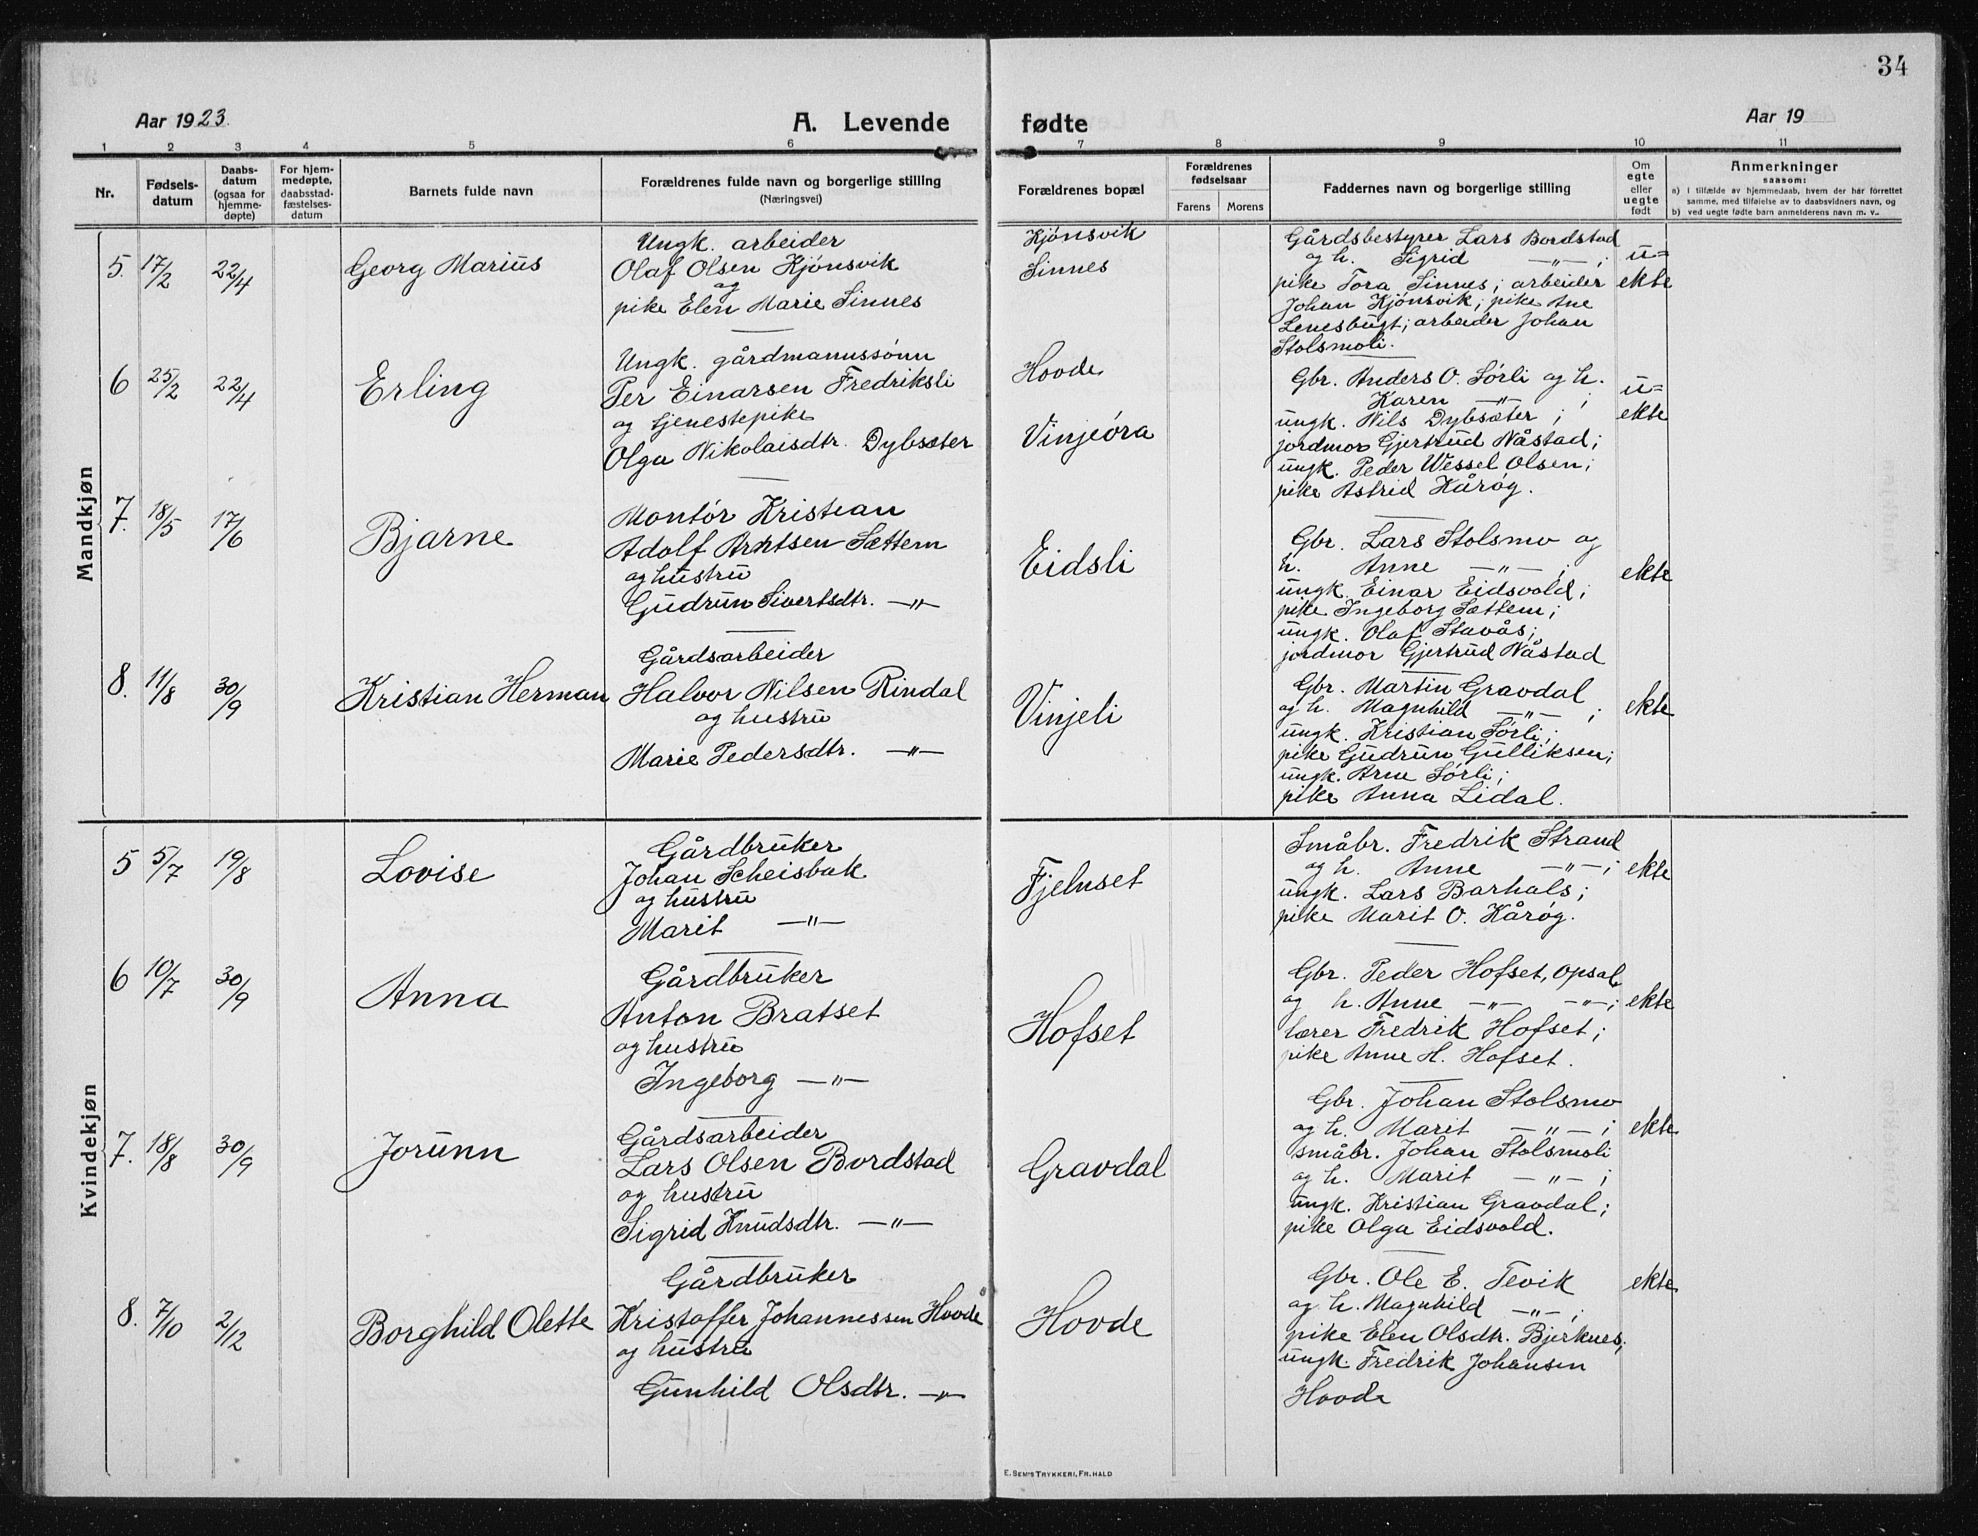 34
Aar 1923.
A. Levende
fødte
Aar 19
1 2 3 4 5 6 7 8 9 10 11
Nr.
Fødsels-
datum
Daabs-
datum
(ogsaa for
hjemme-
døpte)
For hjem-
medøpte,
daabsstad-
fæstelses-
datum
Barnets fulde navn
Forældrenes fulde navn og borgerlige stilling
(Næringsvei)
Forældrenes bopæl
Forældrenes
fødselsaar
Farens Morens
Faddernes navn og borgerlige stilling
Om
egte
eller
uegte
født
Anmerkninger
saasom:
a) I tilfælde av hjemmedaab, hvem der har forrettet
samme, med tilføielse av to daabsvidners navn, og
b) ved uegte fødte barn anmelderens navn m. v.
Mandkjøn
5. 17/2 22/4 Georg Marius
Ungk. arbeider
Olaf Olsen Kjönsvik
og
pike Elen Marie Sinnes
Kjönsvik
Sinnes
Gårdsbestyrer Lars Bordstad
og h. Sigrid —"— ;
pike Tora Sinnes; arbeider
Johan Kjönsvik; pike Ane
Lenesbugt; arbeider Johan
Stolsmoli.
u=
ekte
6 25/2 22/4 Erling
Ungk. gårdmannssönn
Per Einarsen Fredriksli
og tjenestepike
Olga Nikolaisdtr. Dybsæter
Hovde
Vinjeöra
Gbr. Anders O. Sörli og h.
Karen —"— ;
ungk. Nils Dybsæter ;
jordmor Gjertrud Nåstad;
ungk. Peder Wessel Olsen;
pike Astrid Kåröy.
u=
ekte
7. 18/5 17/6 Bjarne
Montör Kristian
Adolf Arntsen Sættem
og hustru
Gudrun Sivertsdtr. —"—
Eidsli
Gbr. Lars Stolsmo og
h. Anne —"— ;
ungk. Einar Eidsvold;
pike Ingeborg Sættem;
ungk. Olaf Stavås;
jordmor Gjertrud Nåstad
ekte
8. 11/8 30/9 Kristian Herman
Gårdsarbeider
Halvor Nilsen Rindal
og hustru
Marie Pedersdtr. —"—
Vinjeli
Gbr. Martin Gravdal
og h. Magnhild —"— ;
ungk. Kristian Sörli;
pike Gudrun Gulliksen;
ungk. Arne Sörli;
pike Anna Lidal.
ekte
Kvindekjøn
5 5/7 19/8 Lovise
Gårdbruker
Johan Scheisbak
og hustru
Marit —"—
Fjelnset
Småbr. Fredrik Strand
og h. Anne —"— ;
ungk. Lars Barhals;
pike Marit O. Kåröy.
ekte
6 10/7 30/9 Anna
Gårdbruker
Anton Bratset
og hustru
Ingeborg —"—
Hofset
Gbr. Peder Hofset, Opsal
og h. Anne —"— —"— ;
lærer Fredrik Hofset;
pike Anne H. Hofset.
ekte
7. 18/8 30/9 Jorunn
Gårdsarbeider
Lars Olsen Bordstad
og hustru
Sigrid Knudsdtr. —"—
Gravdal
Gbr. Johan Stolsmo
og h. Marit —"— ;
småbr. Johan Stolsmoli
og h. Marit —"— ;
ungk. Kristian Gravdal;
pike Olga Eidsvold.
ekte
8. 7/10 2/12 Borghild Olette
Gårdbruker
Kristoffer Johannessen Hovde
og hustru
Gunhild Olsdtr. —"—
Hovde
Gbr. Ole E. Tevik
og h. Magnhild —"— ;
pike Elen Olsdtr. Bjerknes;
ungk. Fredrik Johansen
Hovde
ekte
E. Sem's Trykkeri, Fr.hald